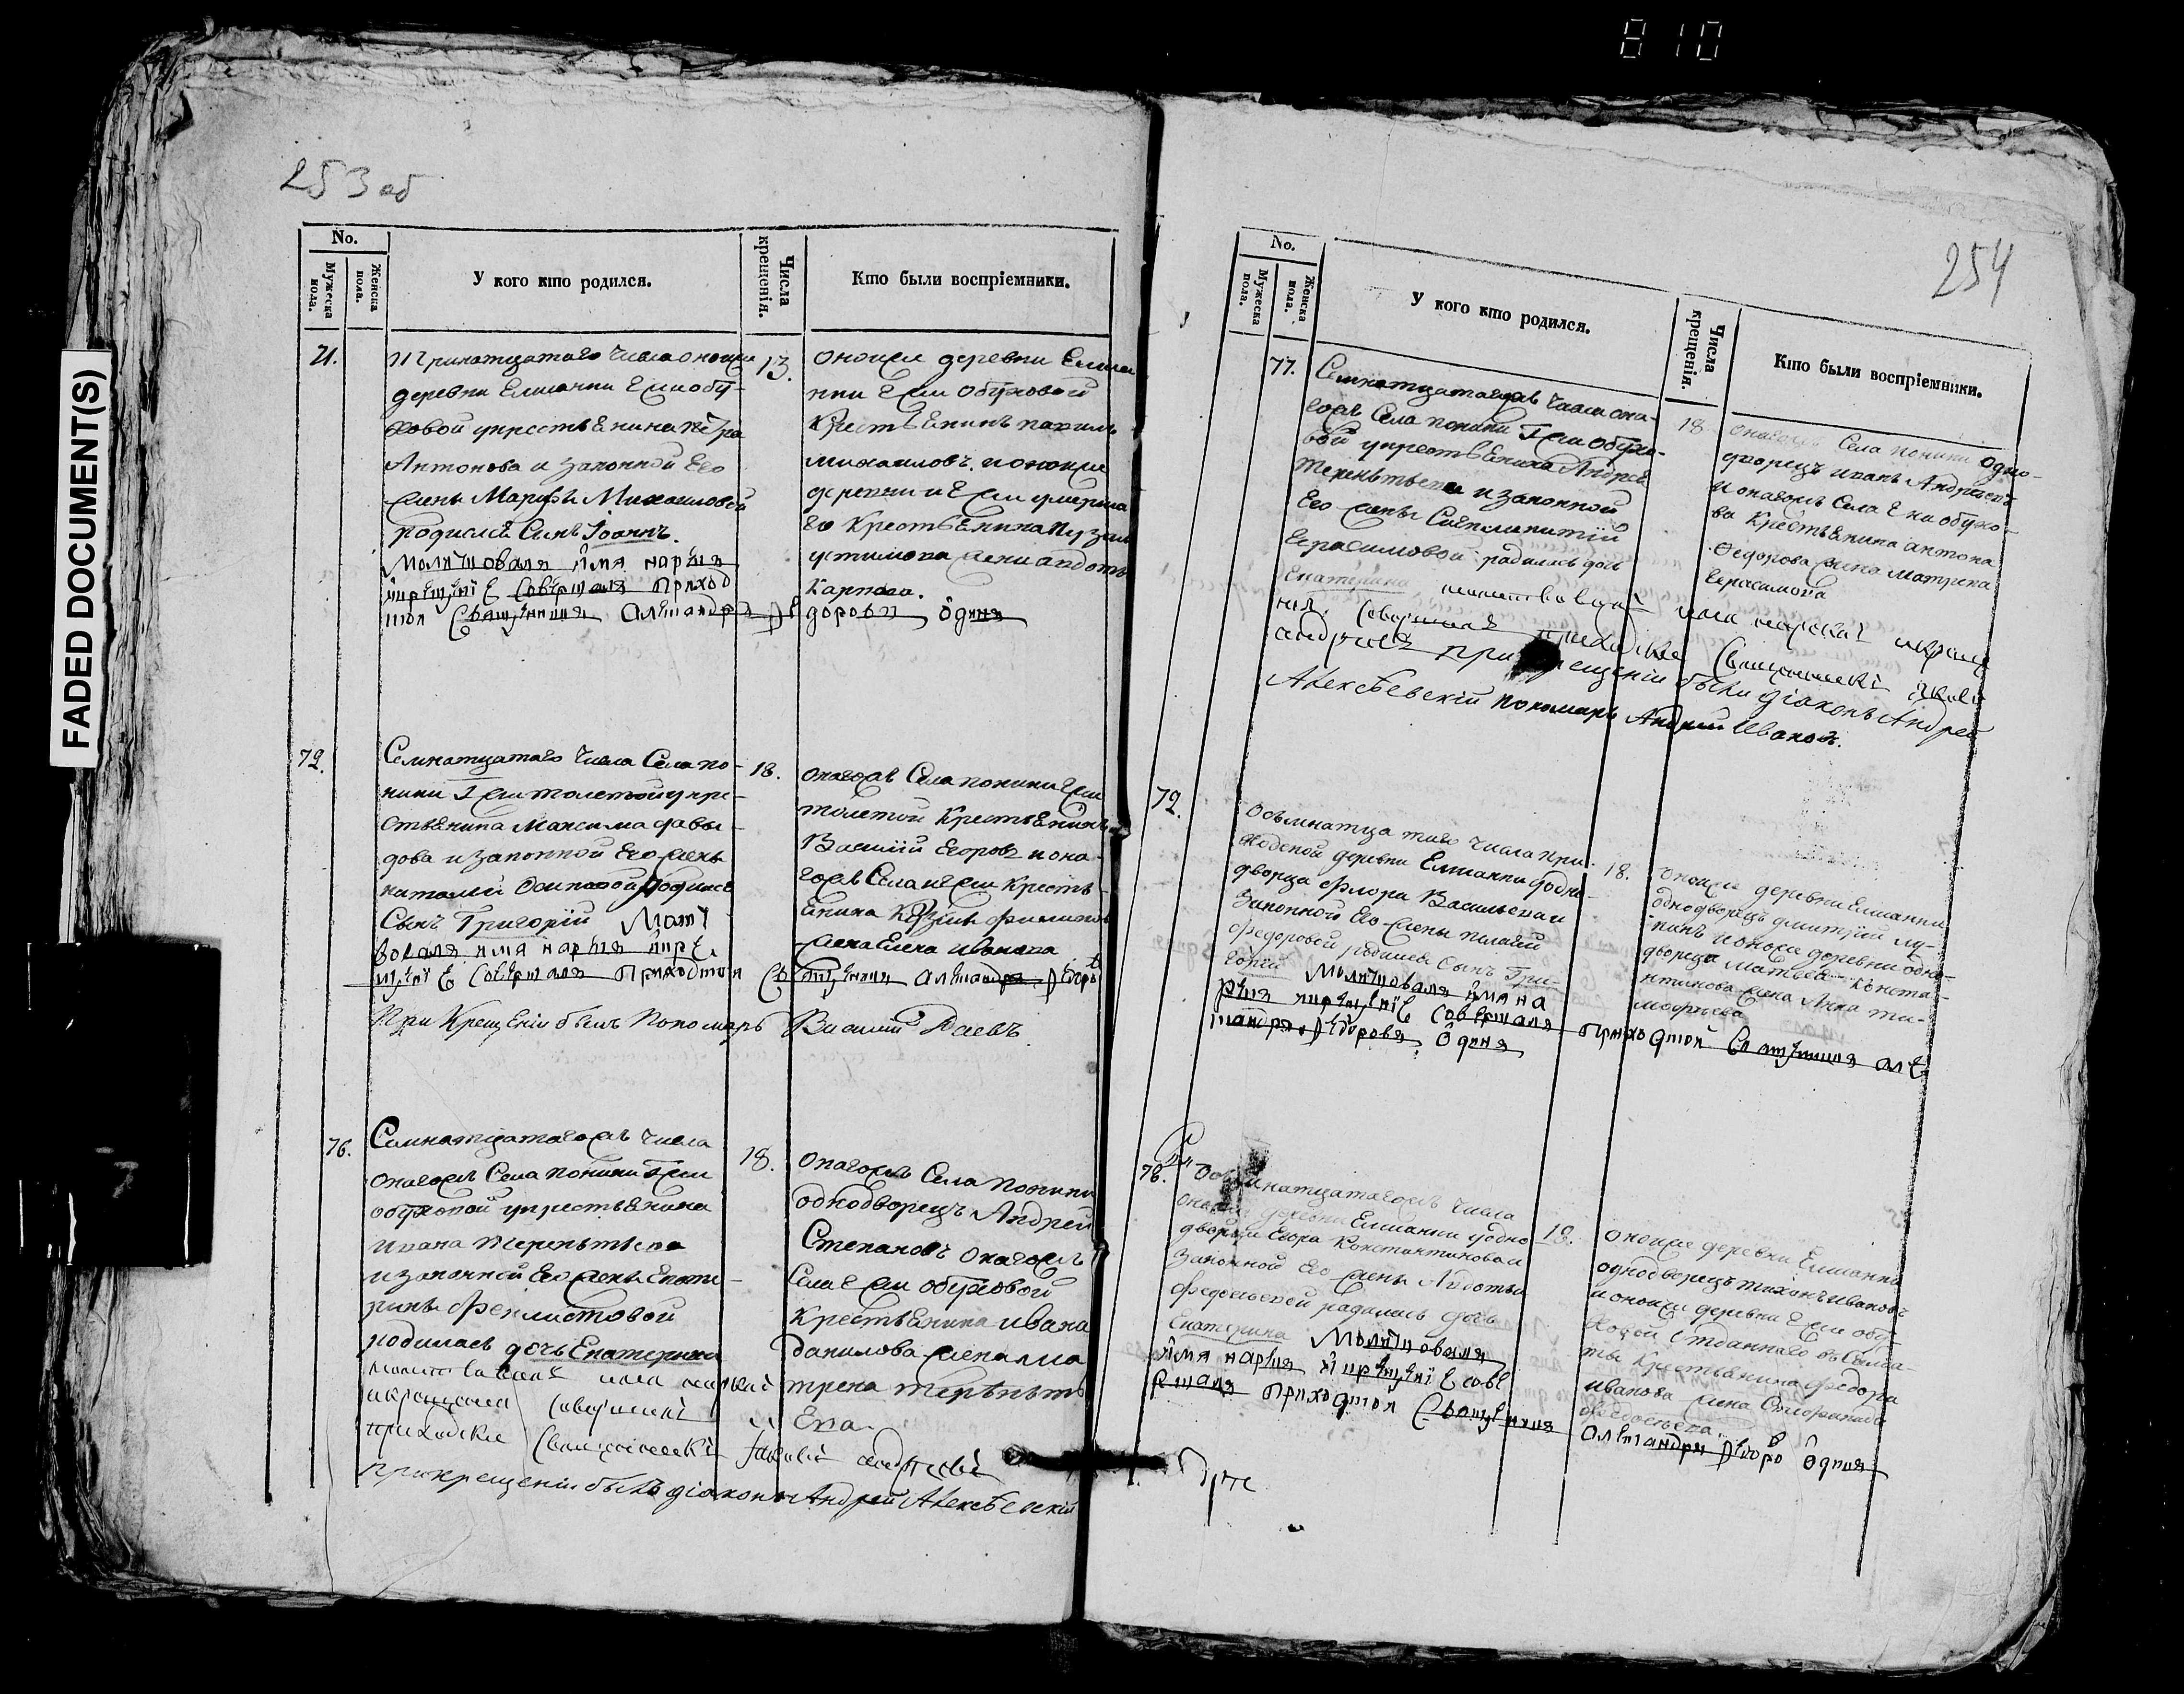 810
FADED DOCUMENT(S)
253 об
No.
Мужеска пола.
Женска пола.
У кого кто родился.
Числа крещенія.
Кто были воспріемники.
71.
деревни Елшанки Г жи Обу-
ховой у крестьенина Петра
Антонова и законной Его
жены Марфы Михаиловой
родился Сынъ Іоаннъ.
Молитвовалъ имя нарѣкъ
и крещениѣ Совершалъ приход
ской Священникъ Александръ Федоровъ Одинъ
13.
оноиже деревни Елша
нки Г жи Обуховой
Крестьенинъ
Михаиловъ. и оноиже
деревни и Г жи умерша
го Крестьенина
устинова жена
Карпова.
72.
Семнатцатаго Числа Села по-
ники Г жи толстой у кре-
стьенина Максима давы-
дова и законной Его жены
наталии Осиповой родился
Сынъ Григорій Молит
вовалъ имя нарѣкъ и кре
щениѣ Совершалъ Приходской Священникъ Александръ Федоровъ
При Крещеніи былъ Пономарь Василий Даевъ
18.
онагожъ Села поники Г жи
толстой Крестьенинъ
Василій Егоровъ и она-
гожъ Села и Г жи Кресть-
енина
жена Елена Иванова
76.
Семнатцатагожъ числа
онагожъ Села поники Г жи
обуховой у крестьенина
Ивана Терентьева
и законной Его жены Екате-
рины Феклистовой
родилась дочь Екатерина
молитвовалъ имя нарекалъ
и крещение совершалъ
приходские Священникъ Іаковъ Андреевъ
при крещеніи былъ діаконъ Андрей Алексѣевскій
18.
Онагожъ Села поники
однодворецъ Андрей
Степановъ Онагожъ
Села Г жи обуховой
Крестьенина Ивана
данилова жена Ма
трена Терентьева
254
No.
Мужеска пола.
Женска пола.
У кого кто родился.
Числа крещенія.
Кто были воспріемники.
77.
Семнатцатагожъ числа она-
гожъ Села поники Г жи Обухо-
вой у крестьенина Андрея
Терентьева и законной
Его жены
Герасимовой родилась дочь
Екатерина молитвовалъ имя нарекалъ и креще
ния Совершалъ приходские Священникъ Іаковъ
андреевъ при крещеніи были діаконъ Андрей
Алексѣевскій пономарь Андрей Ивановъ.
18
онагожъ Села поники Одно-
дворецъ иванъ Андреевъ
и онагожъ Села Г жи обухо-
вы Крестьенина антона
Федорова жена Матрена
Герасимова
72.
Осьмнатцатаго числа при-
ходской деревни Елшанки у одно-
дворца Флора Васильева и
Законной Его жены пелагеи
Федоровой родился Сынъ Гри-
горій Молитвовалъ имя на
рѣкъ и крещениѣ Совершалъ приходской Священникъ Але
ксандръ Федоровъ Одинъ
18.
оноиже деревни Елшанки
однодворецъ дмитрій лу-
кинъ и оноиже деревни одно-
дворца Матвея Конста-
нтинова жена Анна ти-
мофеева
78.
Осьмнатцатагожъ Числа
оноиже деревни Елшанки у одно
дворца Егора Константинова и
Законной Его жены
родилась дочь
Екатерина Молитвовалъ
имя нарѣкъ и крещениѣ сове
ршалъ приходской Священникъ Александръ Федоро Одинъ
18.
Оноиже деревни Елшанки
однодворецъ тихонъ ивановъ
и оноиже деревни Г жи обу-
ховой отданнаго въ Солда-
ты Крестьенина Федора
Иванова жена Стефанида